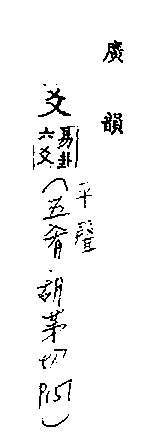 廣韻
爻
易卦
六爻
平聲
(五肴 胡茅切 P151)